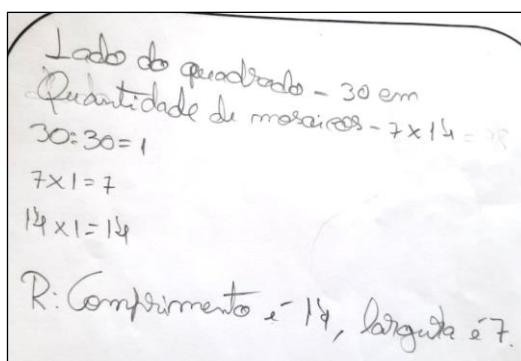 Lado do quadrado - 30 cm
Quantidade de mosaicos - 7 x 14 = 98
30:30 = 1
7 x 1 = 7
14 x 1 = 14
R: Comprimento é 14, largura é 7.